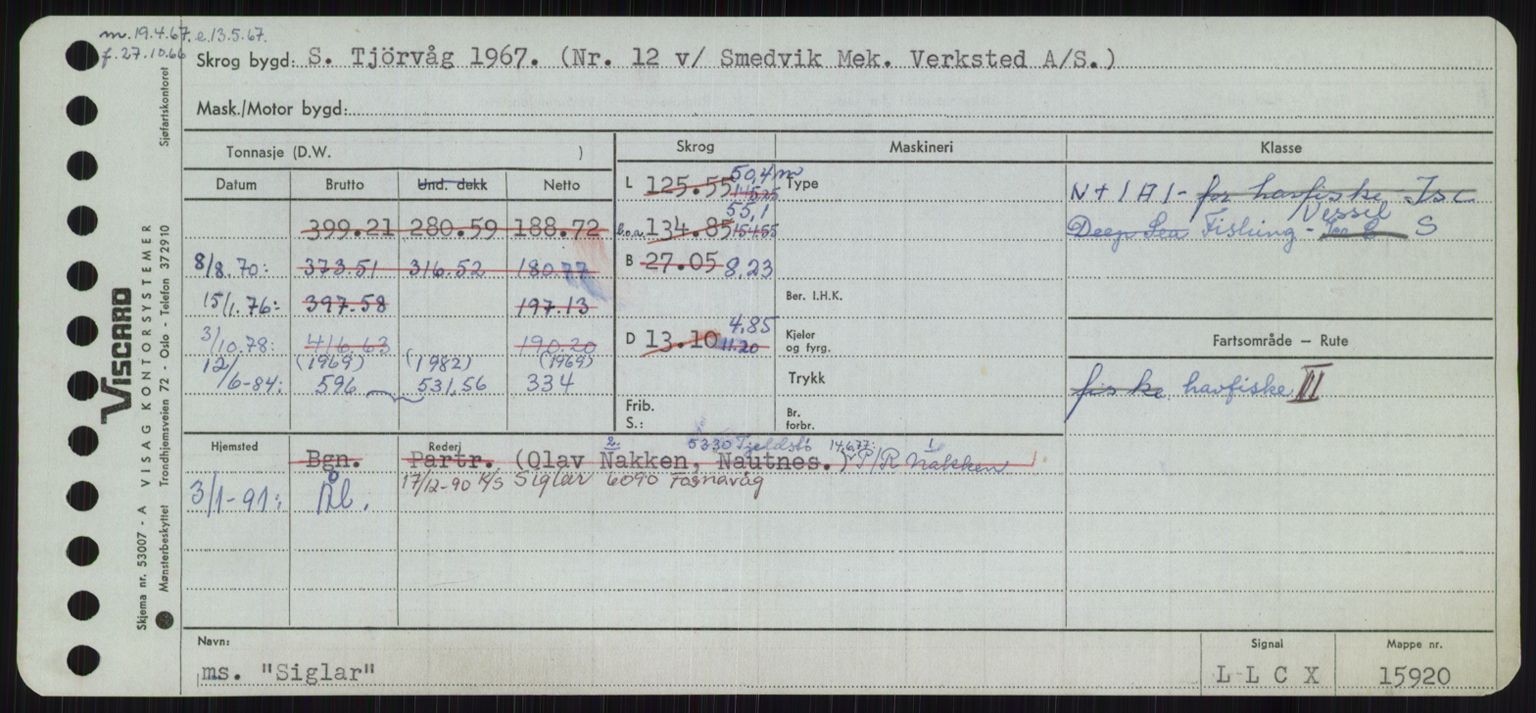 m. 19.4.67. e.13.5.67.
f. 27.10.66
Skrog bygd: S. Tjörvåg 1967. (Nr. 12 v/ Smedvik Mek. Verksted A/S.)
Mask./Motor bygd:
Tonnasje (D.W. )
Skrog Maskineri Klasse
Datum Brutto Und. dekk Netto
L 125.55 50,4 m Type
N + 1 A 1 - for havfiske Is C
399.21 280.59 188.72
h.o.a. 134.85 55,1
Vessel
Deep Sea Fishing - S
8/8.70: 373.51 316.52 180.77
B 27.05 8,23
15/1.76: 397.58 197.13
Ber. I.H.K.
3/10.78: 416.63 190.20
D 13.10 4,85 11.20
Kjeler og fyrg.
Fartsområde — Rute
(1969) (1982) (1969)
12/6-84: 596 531,56 334
Trykk
fiske havfiske III
Frib. S.:
Br. forbr.
Hjemsted Rederj 2. 5330 Tjeldstö 14.6.77: 1
Bgn. Partr. (Olav Nakken, Nautnes.) P/R Nakken
3/1-91: Ål. 17/12-90 K/S Siglar 6090 Fosnavåg
Navn: Signal Mappe nr.
ms. "Siglar" L L C X 15920
VISCARD
VISAG KONTORSYSTEMER
Skjema nr. 53007 - A
Mønsterbeskyttet Trondhjemsveien 72 - Oslo - Telefon 372910
Sjøfartskontoret